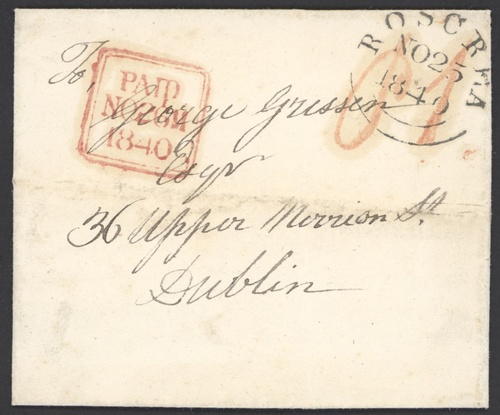 ROSCREA
NO 25
1840
PAID
NO 26
1840
To,
George Grissen
Esqr
36 Upper Merrion St.
Dublin